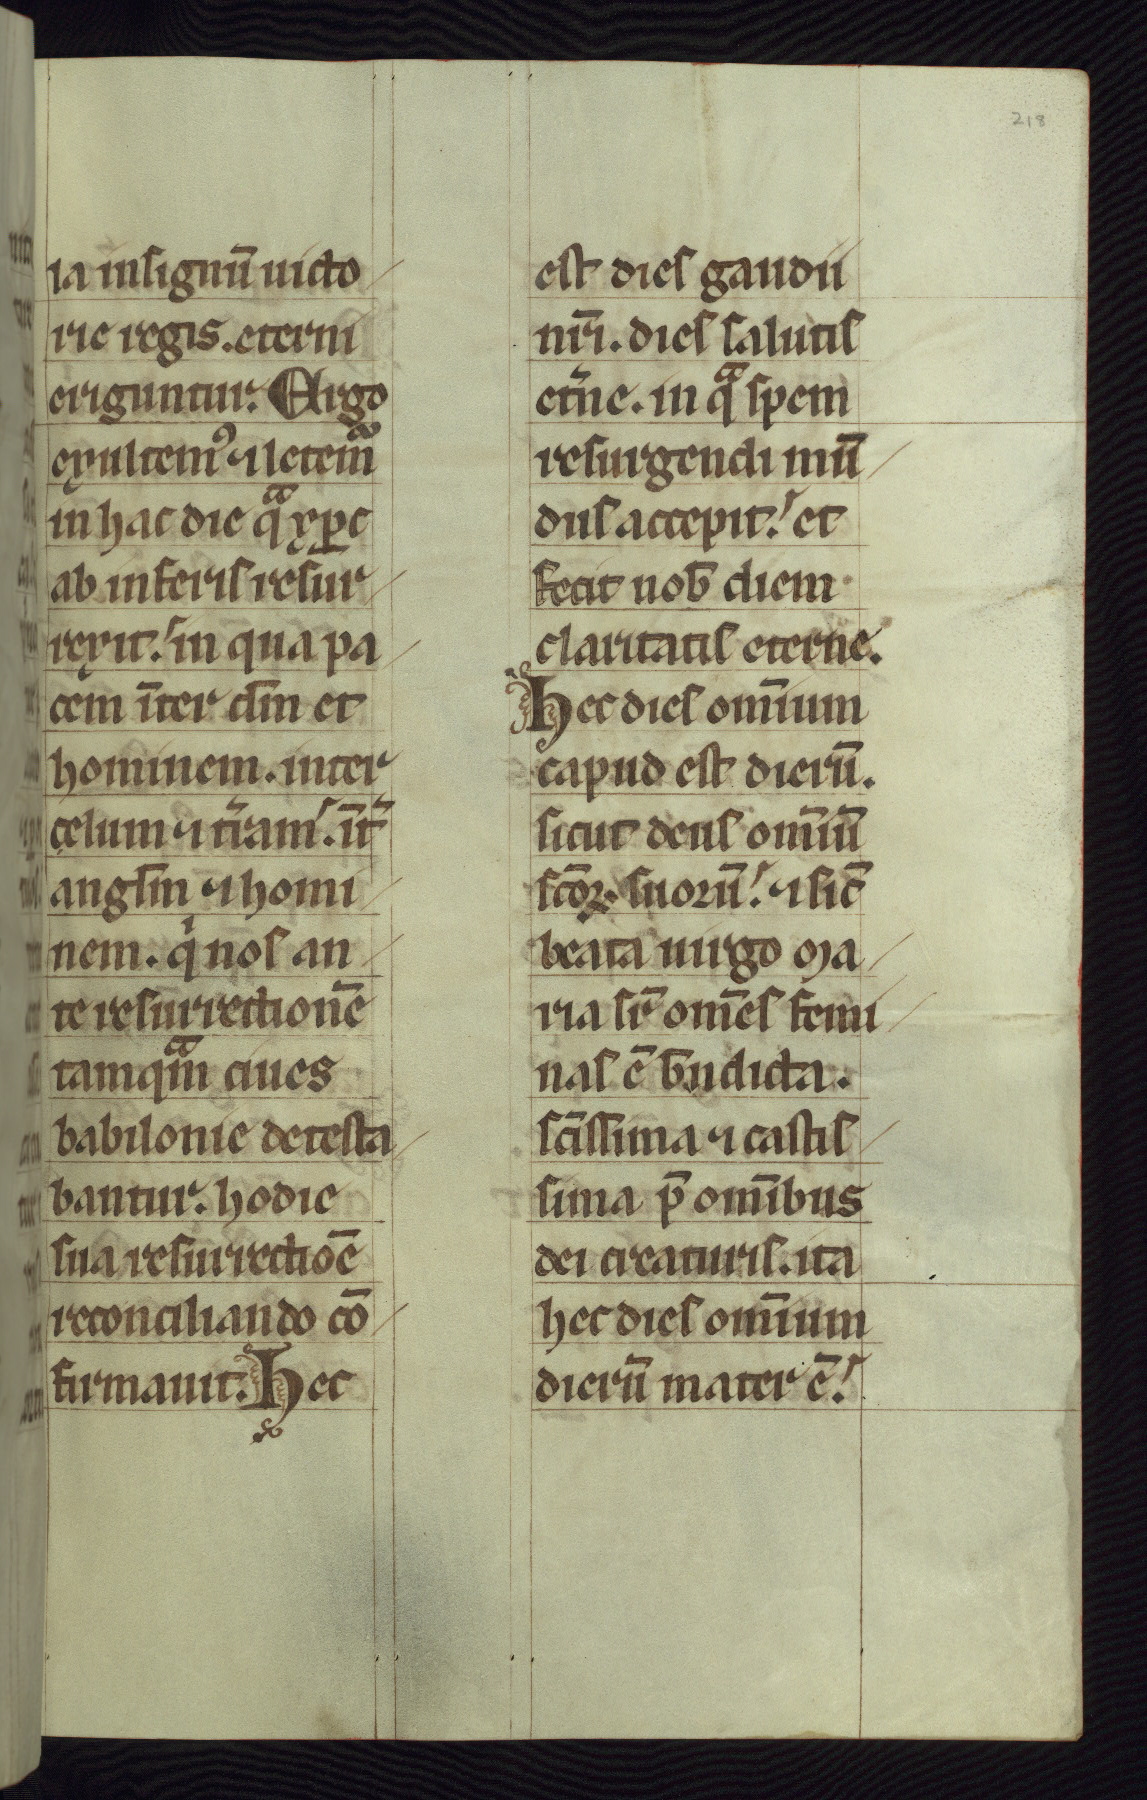 218
ia insignū uicto
rie regis. eterni
eriguntur. Ergo
exultemꝰ ⁊ letemᷓ
in hac die qᷓ xp̄c
ab inferis resur
rexit. in qua pa
cem īter dm̄ et
hominem. inter
celum ⁊ t̄ram. īt̄
anglm̄ ⁊ homi
nem. qͥ nos an
te resurrectionē
tamqᷓm ciues
babilonie detesta
bantur. hodie
sua resurrectiōe
reconciliando cō
firmauit. Hec
est dies gaudii
nr̄i. dies salutis
et̄ne. in qᷓ spem
resurgendi mū
dus accepit. et
fecit nob̄ diem
claritatis eterne.
Hec dies om̄ium
capud est dierū.
sicut deus om̄iū
sc̄oꝝ suorū. ⁊ sic̄
beata uirgo ma
ria sr̄ om̄es femi
nas ē b̄ndicta.
sc̄issima ⁊ castis
sima p̄ om̄ibus
dei creaturis. ita
hec dies om̄ium
dierū mater ē.